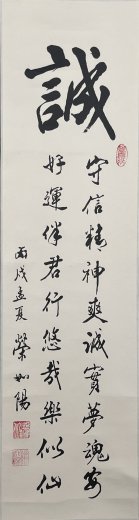 誠
守信精神爽誠實夢魂安
好運伴君行悠哉樂似仙
丙戌孟夏 榮如陽